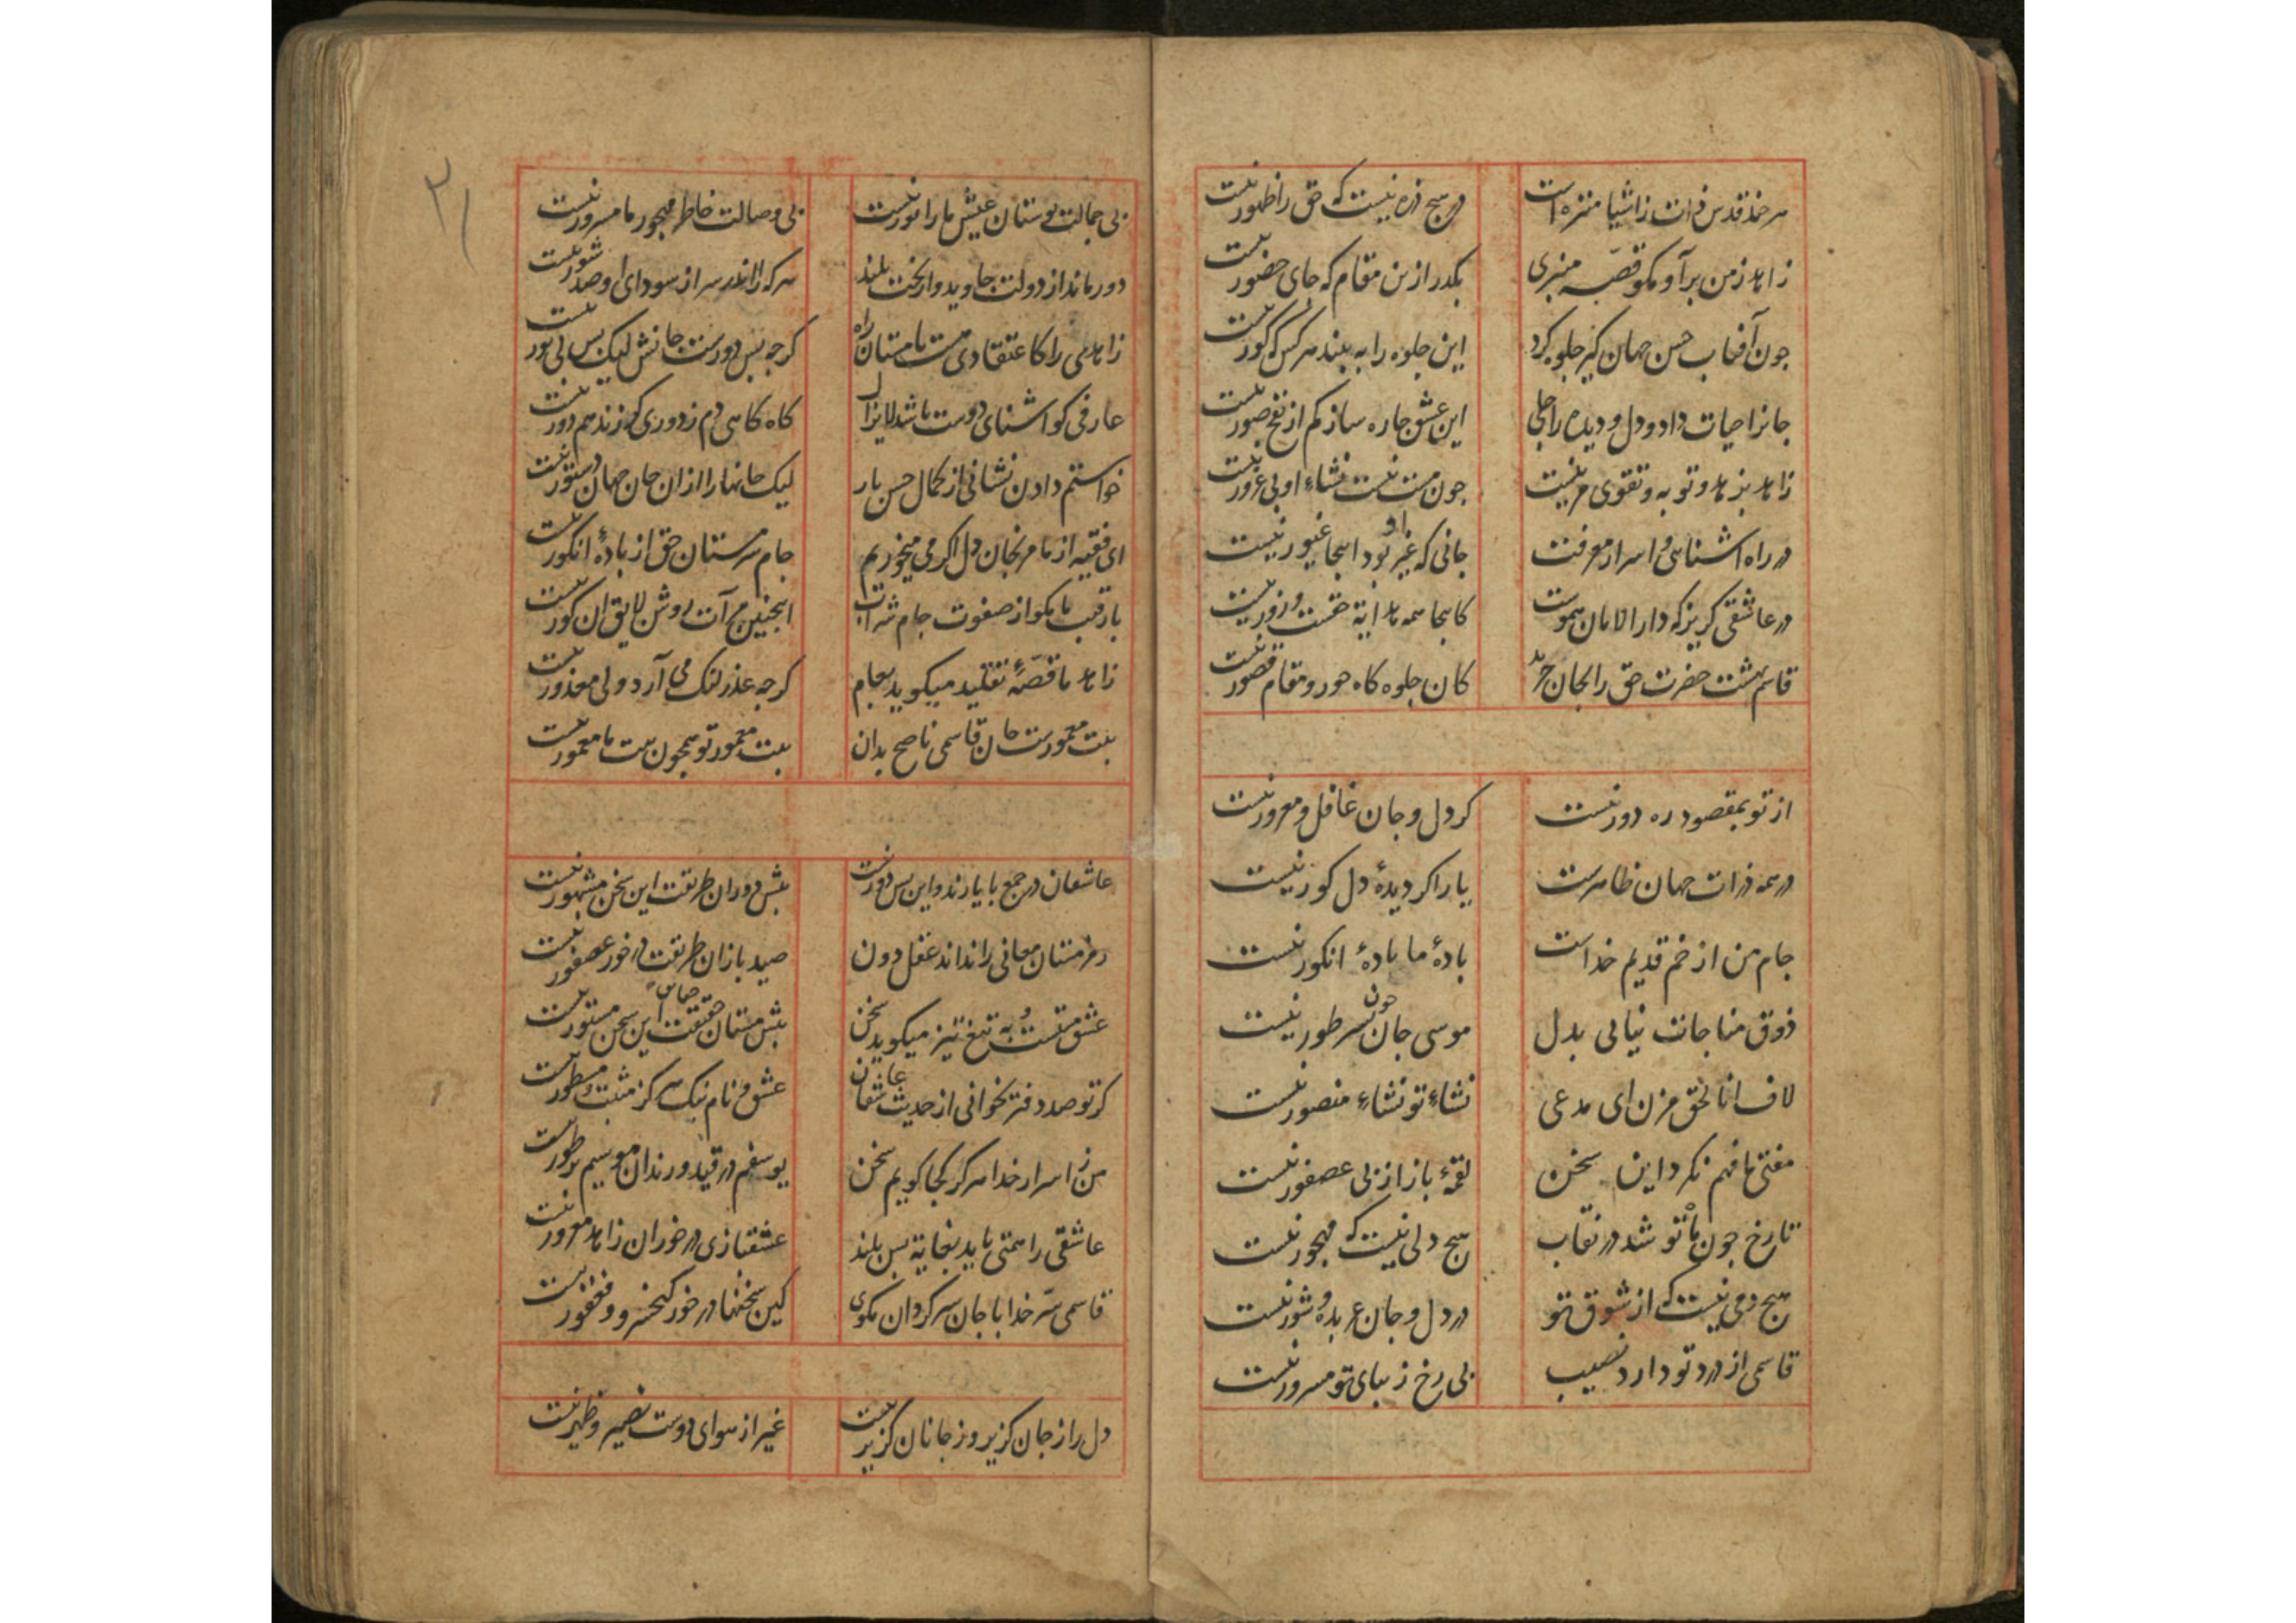 هر چند قدس ذات ز اشیا منزه است در هیچ ذره نیست که حق را ظهور نیست
زاهد ز من برآ و مکو قصه منبری بکذر ازین مقام که جای حضور نیست
چون آفتاب حسن جهان کیر جلوه کرد این جلوه را به بیند هر کس که کور نیست
جانرا حیات داد و دل و دیده را جلی این عشق چاره ساز کم از نفخ صور نیست
زاهد بزهد و توبه و تقوی مزین است چون مست نیست نشاء او بی غرور نیست
در راه اشناسی و اسرار معرفت جانی که غیر او بود انجا غیور نیست
در عاشقی کریز که دار الامان هموست کانجا همه هدایة حقست و زور نیست
قاسم بهشت حضرت حق را بجان خرید کان جلوه کاه حور و مقام قصور نیست
از تو بمقصود ره دور نیست کر دل و جان غافل و مغرور نیست
در همه ذرات جهان ظاهرست یار اکر دیدهٔ دل کور نیست
جام من از خم قدیم خداست بادهٔ ما بادهٔ انکور نیست
ذوق مناجات نیابی بدل موسی جان چون بسر طور نیست
لاف انا لحق مزن ای مدعی نشاءِ تو نشاءِ منصور نیست
مفتی ما فهم نکرد این سخن لقمهٔ باز از پی عصفور نیست
تا رخ چون ماه تو شد در نقاب هیچ دلی نیست که مهجور نیست
هیچ دمی نیست که از شوق تو در دل و جان عربده و شور نیست
قاسمی از درد تو دارد نصیب بی رخ زیبای تو مسرور نیست
۳۱
بی جمالت بوستان عیش ما را نور نیست بی وصالت خاطر مهجور ما مسرور نیست
دور ماند از دولت جاوید و از بخت بلند هر که را اندر سر از سودای او صد شور نیست
زاهدی را کاعتقادی هست با مستان راه کرچه بس دورست جانش لیک بس بی نور نیست
عارفی کو اشنای دوست باشد لا یزال کاه کاهی دم ز دوری کر زند هم دور نیست
خواستم دادن نشانی از کمال حسن یار لیک جانها را از ان جان جهان دستور نیست
ای فقیه از ما مرنجان دل اکر می میخوریم جام سرمستان حق از بادهٔ انکور نیست
با رقیب ما مکو از صفوت جام شراب اینچنین مرآت روشن لایق ان کور نیست
زاهد ما قصهٔ تقلید میکوید بعام کرچه عذر لنک می آرد ولی معذور نیست
بیت معمورست جان قاسمی ناصح بدان بیت معمور تو همچون بیت ما معمور نیست
عاشقان در جمع با یارند و این بس دور نیست پیش دوران طریقت این سخن مشهور نیست
رمز مستان معانی را نداند عقل دون صید بازان طریقت در خور عصفور نیست
عشق مستست و به تیغ تیز میکوید سخن پیش مستان حقیقت این سخن مستور نیست
کر تو صد دفتر بخوانی از حدیث عاشقان عشق و نام نیک هرکز مثبت و مسطور نیست
من ز اسرار خدا هرکز کجا کویم سخن یوسفم در قید و زندان موسیم بر طور نیست
عاشقی را همتی باید بغایة بس بلند عشقبازی در خور ان زاهد مغرور نیست
قاسمی سر خدا با جان سرکردان مکوی کین سخنها در خور کیخسرو و فغفور نیست
دل را ز جان کزیر و ز جانان کزیر نیست غیر از هوای دوست نصیر و ظهیر نیست